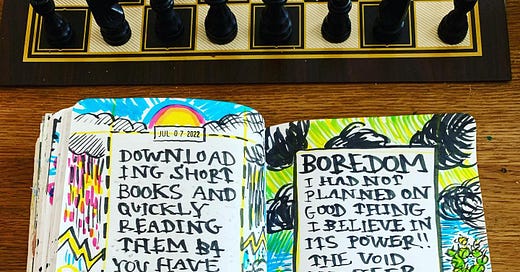 JUL 07 2022
DOWNLOAD
ING SHORT
BOOKS AND
QUICKLY
READING
THEM B4
YOU HAVE
BOREDOM
I HAD NOT
PLANNED ON
GOOD THING
I BELIEVE IN
ITS POWER!!
THE VOID